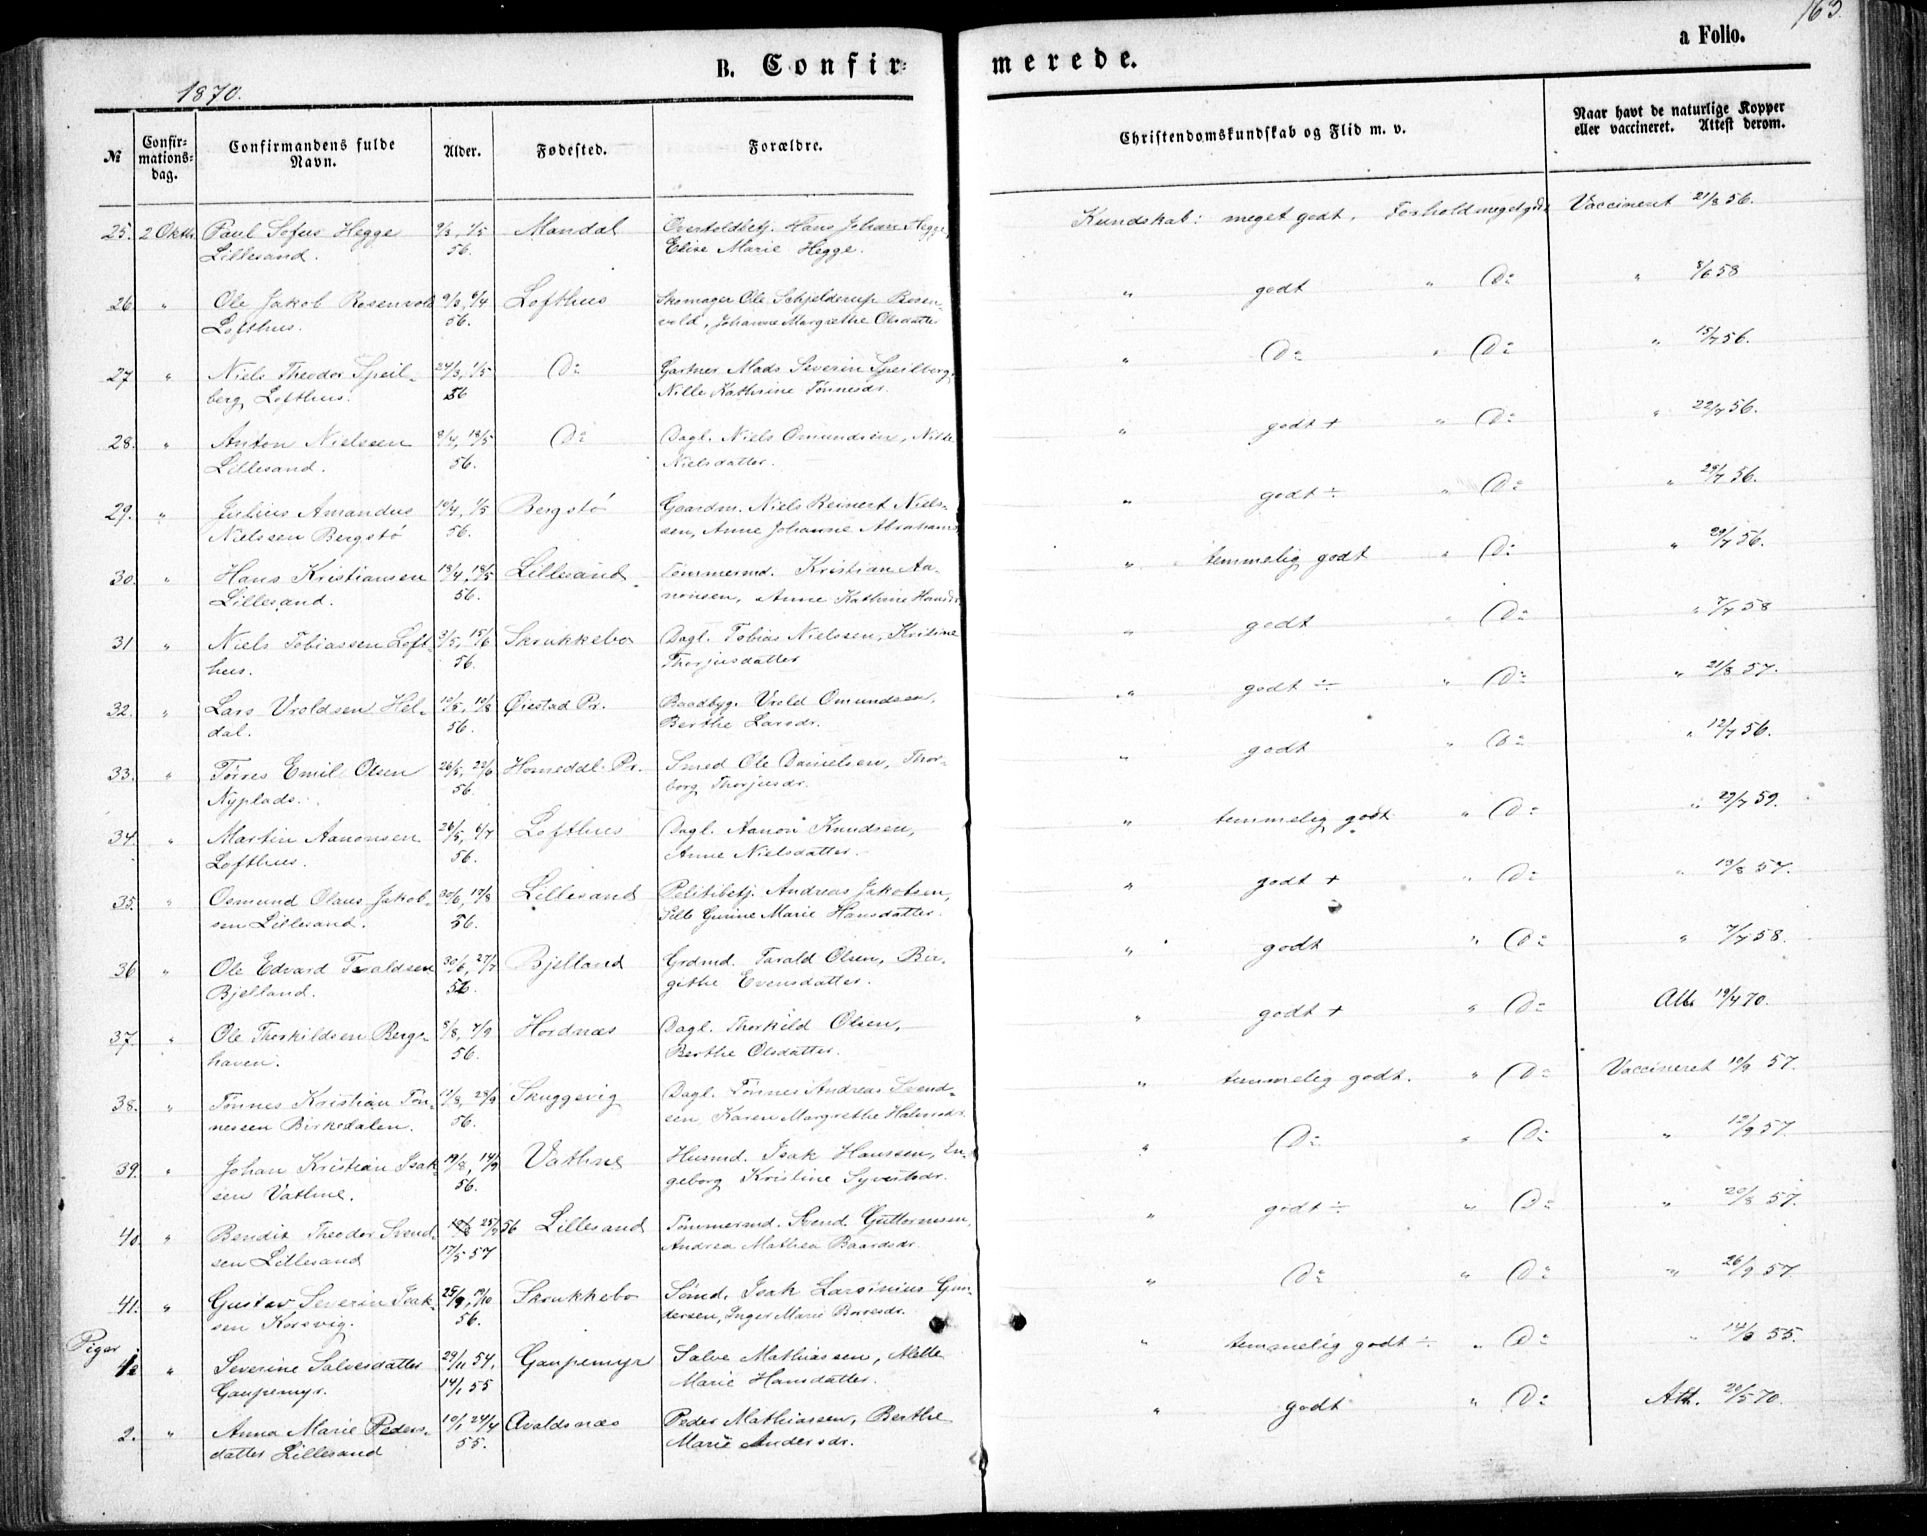 163.
a Folio.
B. Confirmerede.
1870.
№ Confirmationsdag. Confirmandens fulde Navn. Alder. Fødested. Forældre. Christendomskundskab og Flid m. v. Naar havt de naturlige Kopper eller vaccineret. Attest derom.
25. 2 Oktb. Paul Sofus Hegge 9/3, 1/5 Mandal Overtoldbetj. Hans Johan Hegge, Kundskab: meget godt. Forhold meget godt Vaccineret 21/8 56.
Lillesand. 56. Elise Marie Hegge.
26. " Ole Jakob Rosenvold 9/3, 6/4 Lofthus Skomager Ole Schjelderup Rosen- " godt " Do " 8/6 58
Lofthus. 56. vold, Johanne Margrethe Olsdatter
27 " Niels Theodor Speil- 24/3, 1/5 Do Gartner Mads Severin Speilberg, " Do " Do " 15/7 56.
berg Lofthus. 56 Nille Kathrine Tønnesdr.
28. " Anton Nielssen 8/4, 18/5 Do Dagl. Niels Omundsen, Nille " godt + " Do " 22/7 56.
Lillesand. 56. Nielsdatter.
29. " Julius Amandus 19/4, 1/5 Bergstø Gaardm. Niels Reinert Niels- " godt ÷ " Do " 29/7 56.
Nielssen Bergstø 56. sen, Anne Johanne Abrahams
30. " Hans Kristiansen 18/4, 18/5 Lillesand Tømmermd. Kristian Aa- " temmelig godt " Do " 29/7 56.
Lillesand. 56. nonsen, Anne Kathrine Hansdr.
31 " Niels Tobiassen Loft- 3/5, 15/6 Skrukkebo Dagl. Tobias Nielssen, Kristine " godt " Do " 7/7 58
hus. 56. Thorjusdatter
32. " Lars Vroldsen Hel- 10/5, 10/8 Øiestad Pr. Baadbyg. Vrold Omundsen, " godt ÷ " Do " 21/8 57.
dal. 56. Berthe Larsdr.
33. " Tørres Emil Olsen 26/5, 22/6 Homeddl. Pr. Smed Ole Danielsen, Thor- " godt " Do " 12/7 56.
Nyplads. 56. borg Thorjusdr.
34. " Martin Aanonsen 26/5, 6/7 Lofthus Dagl. Aanon Knudsen, " temmelig godt " Do " 29/7 59.
Lofthus. 56. Anne Nielsdatter.
35. " Osmund Olaus Jakob- 30/6, 17/8 Lillesand Politibetj. Andreas Jakobsen, " godt + " Do " 19/8 57.
sen Lillesand. 56. Gurine Marie Hansdatter.
36 " Ole Edvard Taraldsen 30/6, 27/7 Bjelland Grdmd. Tarald Olsen, Bir- " godt " Do " 7/7 58.
Bjelland. 56. githe Evensdatter.
37. " Ole Thorkildsen Bergs- 8/8, 7/9 Hordnæs Dagl. Thorkild Olsen, " godt + " Do Att. 19/4 70.
haven. 56. Berthe Olsdatter.
38. " Tønnes Kristian Tøn- 17/8, 28/9 Skuggevig Dagl. Tønnes Andreas Svend- " temmelig godt. " Do Vaccineret 10/9 57.
nessen Birkedalen. 56. sen Karen Margrethe Halvorsdr.
39. " Johan Kristian Isak- 19/8, 14/9 Vathne Husmd. Isak Hanssen, In- " Do " Do " 12/9 57.
sen Vathne. 56. geborg Kristine Syvertsdr.
40. " Bendik Theodor Svend- 19/8 25/9 56 Lillesand Tømmermd. Svend Guttormsen, " godt ÷ " Do " 20/8 57.
sen Lillesand 17/5 57 Andrea Mathea Baardsdr.
41. " Gustav Severin Isak- 25/9, 19/10 Skrukkebo Sømd. Isak Larsinius Gun- " Do " Do " 26/9 57.
sen Korsvig. 56. dersen, Inger Marie Bovesdr.
Piger
1 " Severine Salvesdatter 29/11 54. Gaupemyr Salve Mathiassen, Mette " temmelig godt ÷ " Do " 14/6 55.
Gaupemyr. 14/1 55 Marie Hansdatter.
2. " Anna Marie Peders- 10/1 24/4 Avaldsnæs Peder Mathiassen, Berthe " godt " Do Att. 20/5 70.
datter Lillesand 55. Marie Andersdr.